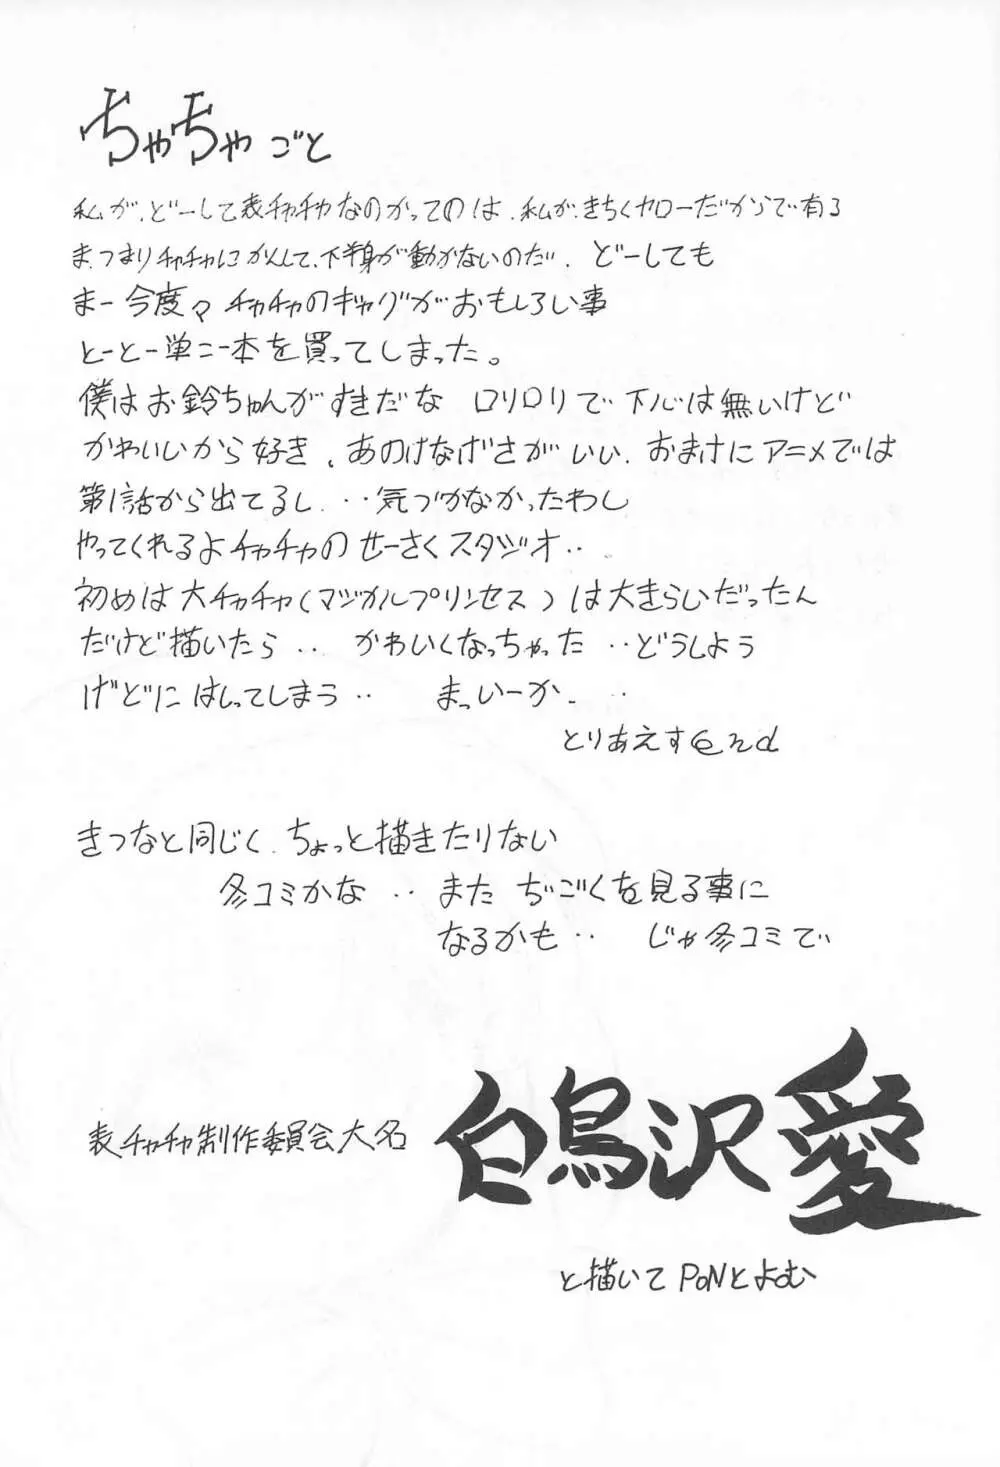 ちゃちゃごと
私が、どーして表チャチャなのかってのは、私が、きちくヤローだからで有る
ま、つまりチャチャにかんして、下半身が動かないのだ、どーしても
まー今度々チャチャのギャグがおもしろい事
とーとー単こ一本を買ってしまった。
僕はお鈴ちゃんがすきだな ロリロリで下心は無いけど
かわいいから好き、あのけなげさがいい、おまけにアニメでは
第1話から出てるし‥気づかなかったわし
やってくれるよチャチャのせーさくスタジオ‥
初めは大チャチャ(マジカルプリンセス)は大きらいだったん
だけど描いたら‥かわいくなっちゃった‥どうしよう
げどにはしってしまう‥まっいーか‥
とりあえすend
きつなと同じく、ちょっと描きたりない
冬コミかな‥また ぢごくを見る事に
なるかも‥ じゃ冬コミで
表チャチャ制作委員会大名
白鳥沢愛
と描いてPoNとよむ